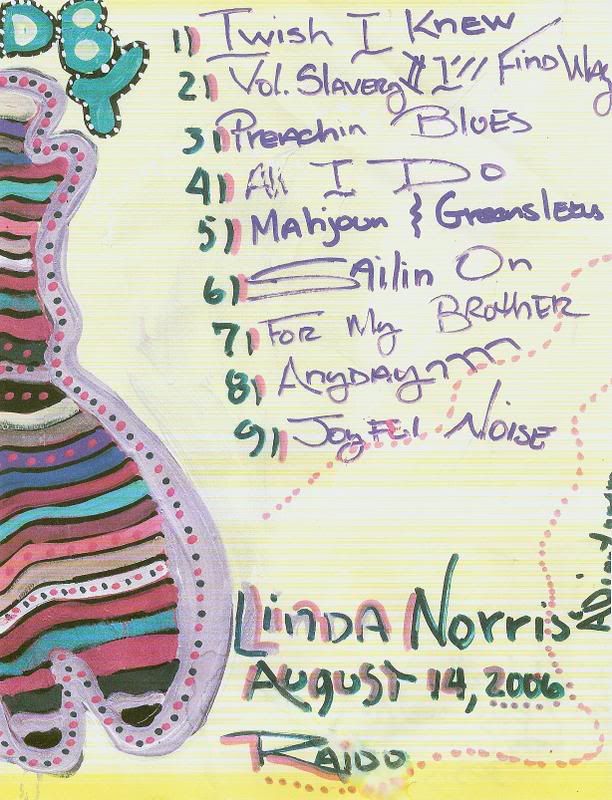 DB
Y
1) I wish I Knew
2) Vol. Slavery I'll Find Way
3) Preachin Blues
4) All I Do
5) Mahjoun } Greensleeves
6) Sailin On
7) For My Brother
8) Anyday
9) Joyful Noise
Linda Norris
August 14, 2006
Raido